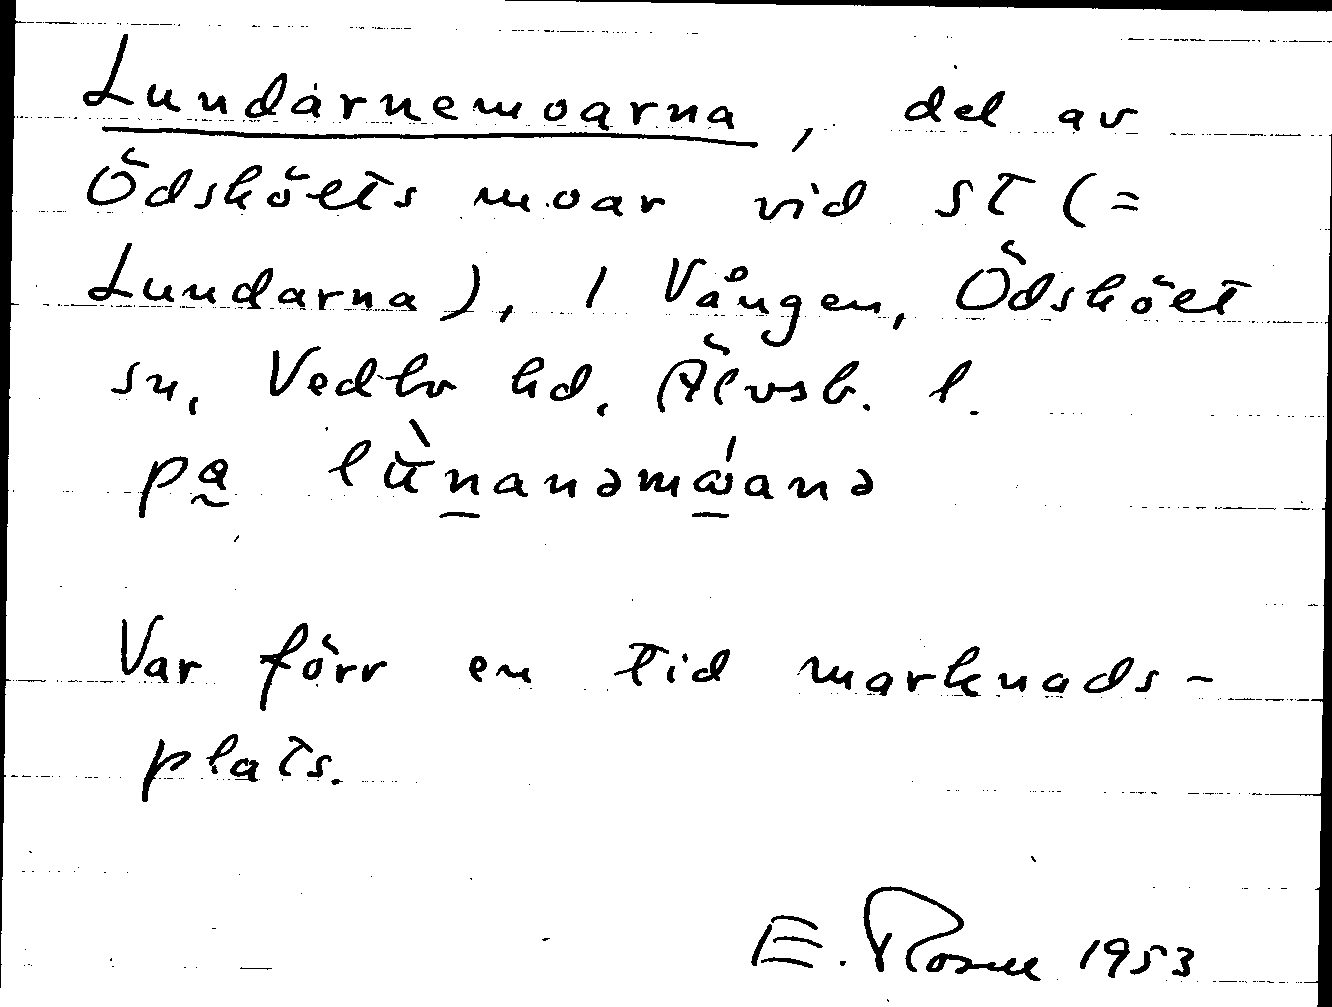 Lundarnemoarna, del av
Ödskölts moar vid st (=
Lundarna), 1 Vången, Ödskölt
sn, Vedbo hd, Älvsb. l.
på lùnanəmáanə
Var förr en tid marknads-
plats.
E. Rosell 1953